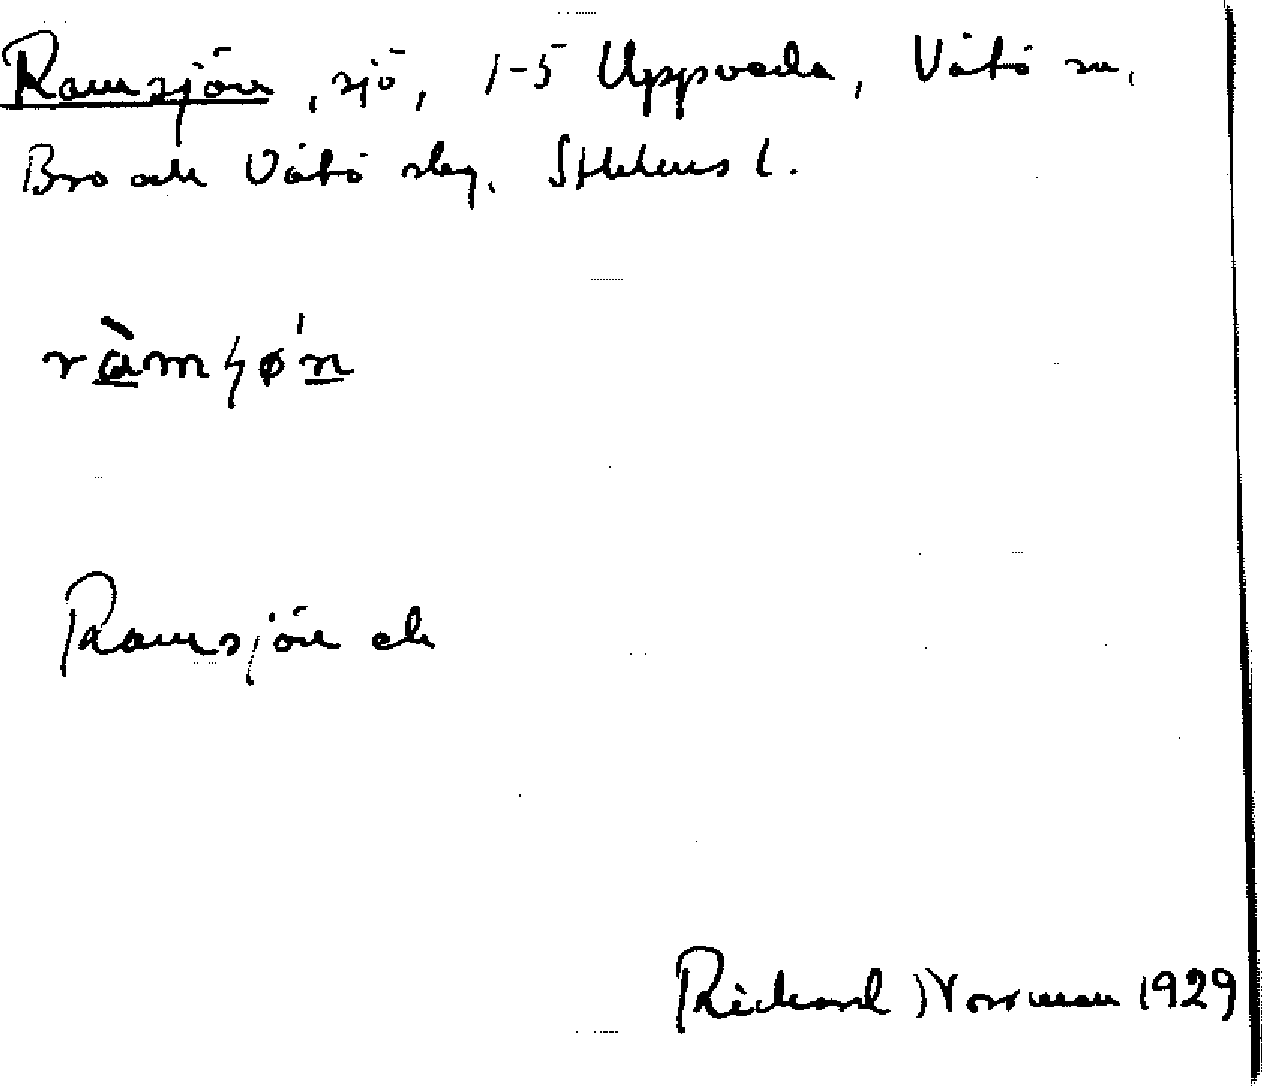 Ramsjön, sjö, 1-5 Uppveda, Vätö sn,
Bro och Vätö skg. Sthlms l.
ràmsø'n
Ramsjön ek
Rickard Norrman 1929